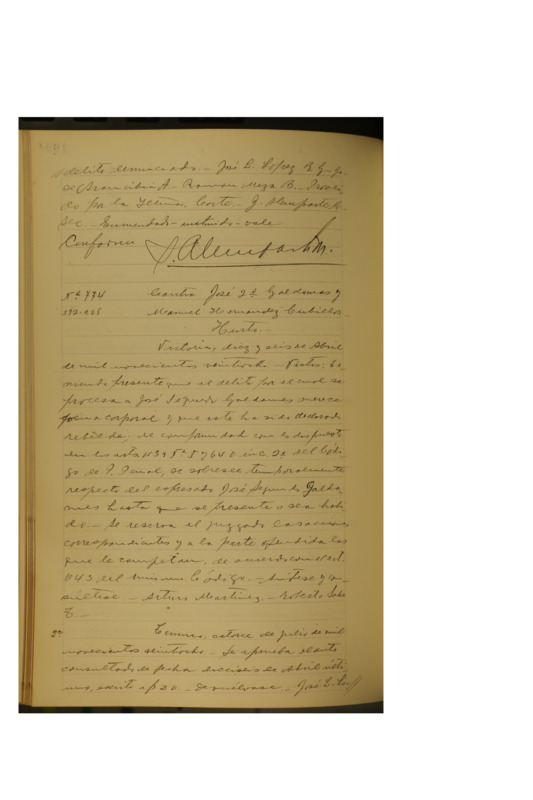 delito denunciado.- José L. López R G.- G.
de Arancibia A.- Roman Meza B.- Provei-
do por la Iltma. Corte.- J. Alemparte R.
Sec. Enmendado- instruido- vale
Conforme
Nº 774 Contra José 2º Galdamez y
Manuel Hernandez Cubillos.
Hurto.
Victoria, diez y seis de Abril
de mil novecientos veintiocho.- Vistos: Te-
niendo presente que el delito por el cual se
procesa a José Segundo Galdames merece
pena corporal y que este ha sido declarado
rebelde, de conformidad con lo dispuesto
en los arts 439 Nº 5 y 640 inc. 2º del Códi-
go de P. Penal, se sobresee temporalmente
respecto del expresado José Segundo Galda-
mes hasta que se presente o sea habi-
do.- Se reserva el juzgado las acciones
correspondientes y a la parte ofendida las
que le competan, de acuerdo con el art.
643 del mismo Código.- Anótese y con-
súltese.- Arturo Martinez.- Roberto
2º Temuco, catorce de julio de mil
novecientos veintiocho.- Se aprueba el auto
consultado de fecha dieciseis de Abril últi-
mo, escrito a f 20.- Devuélvase.- José L. Ló//